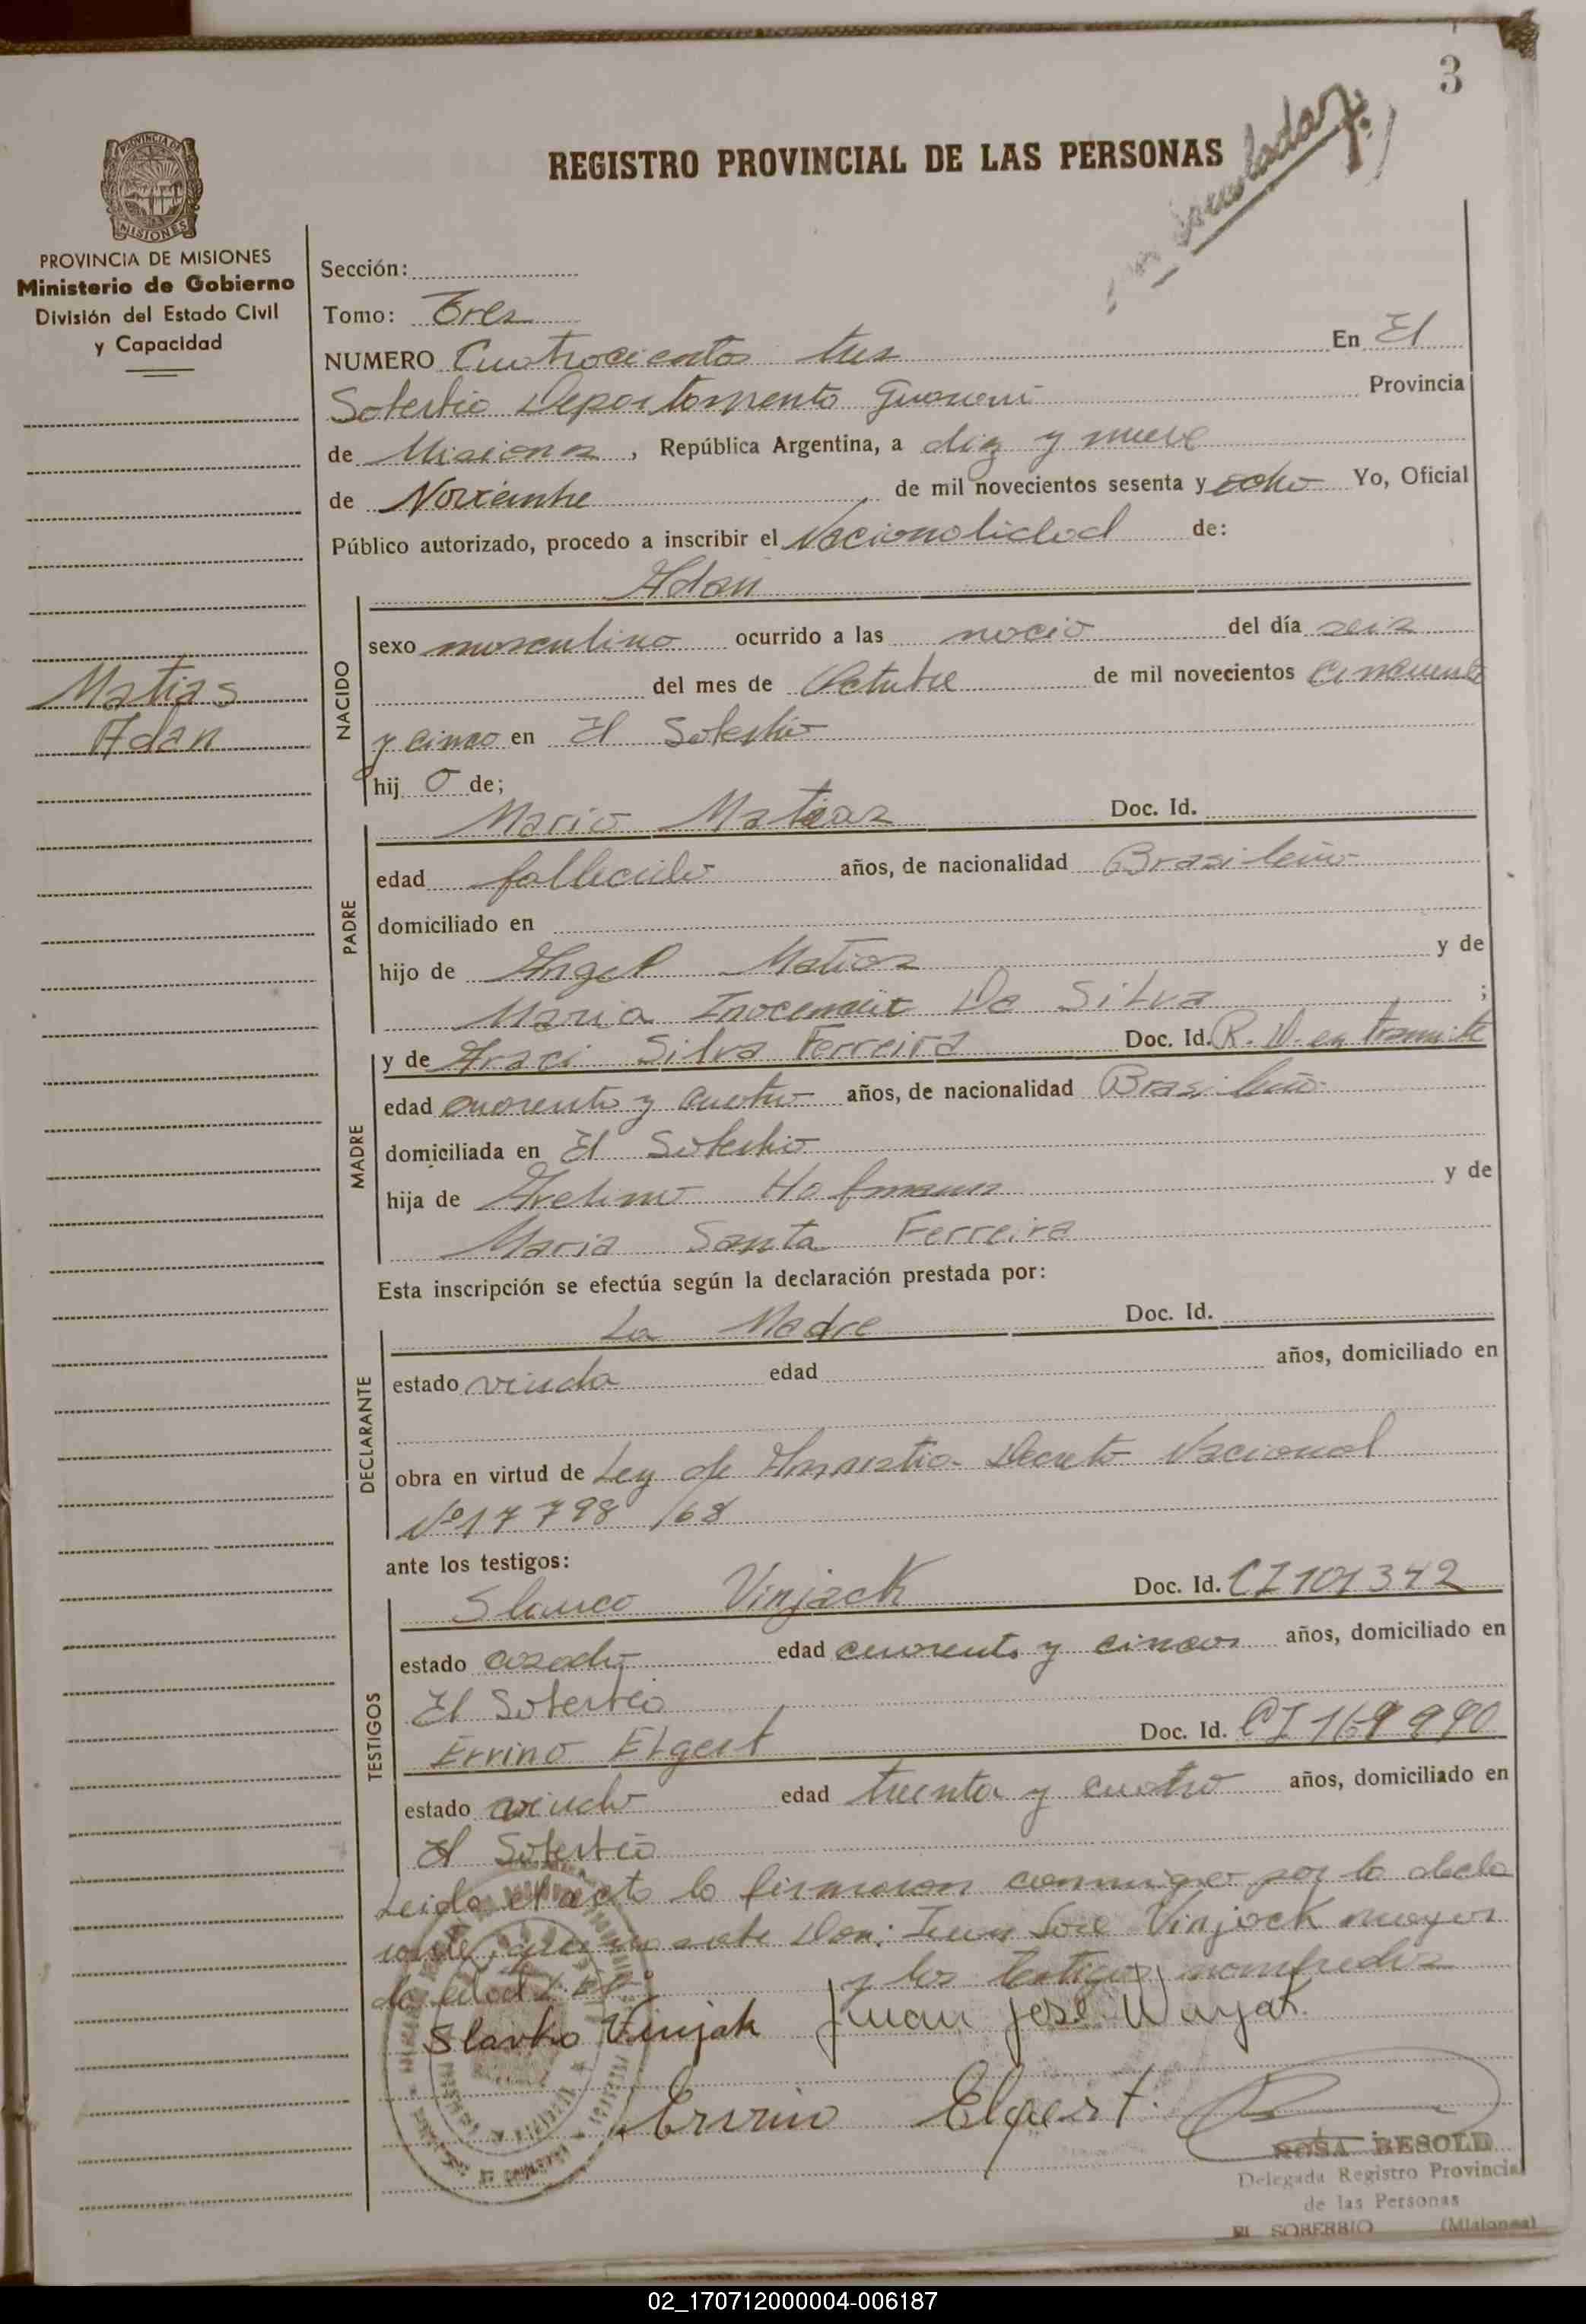 3
REGISTRO PROVINCIAL DE LAS PERSONAS
PROVINCIA DE MISIONES
Ministerio de Gobierno
División del Estado Civil
y Capacidad
Sección:
Tomo: Tres
NUMERO Cuatrocientos tres En El
Soberbio Departamento Guarani Provincia
de Misiones, República Argentina, a diez y nueve
de Noviembre de mil novecientos sesenta y ocho Yo, Oficial
Público autorizado, procedo a inscribir el Nacionalidad de:
Adan
Matias
Adan
NACIDO
sexo masculino ocurrido a las nacio del día seis
del mes de Octubre de mil novecientos cincuenta
y cinco en El Soberbio
hij o de;
Mario Matias Doc. Id.
PADRE
edad fallecido años, de nacionalidad Brasileño
domiciliado en
hijo de Angel Matias y de
Maria Da Silva ;
MADRE
y de Araci Silva Ferreira Doc. Id. R. N. en tramite
edad cuarenta y cuatro años, de nacionalidad Brasileño
domiciliada en El Soberbio
hija de Avelino Hofmann y de
Maria Santa Ferreira
Esta inscripción se efectúa según la declaración prestada por:
DECLARANTE
La Madre Doc. Id.
estado viuda edad años, domiciliado en
obra en virtud de Ley de Amnistia Decreto Nacional
Nº 17798/68
ante los testigos:
TESTIGOS
Slauco Vinjack Doc. Id. CI 101342
estado casado edad cuarenta y cinco años, domiciliado en
El Soberbio
Ervino Elgert Doc. Id. CI
estado viudo edad treinta y cuatro años, domiciliado en
El Soberbio
Leida el acto lo firmaron conmigo por la decla
rante, que no sabe Don: Juan José Vinjack mayor
de edad y los testigos nombrados
Slavko Vinjak Juan José
Ervino Elgert
ROSA RESOLD
Delegada Registro Provincial
de las Personas
EL SOBERBIO (Misiones)
02_170712000004-006187